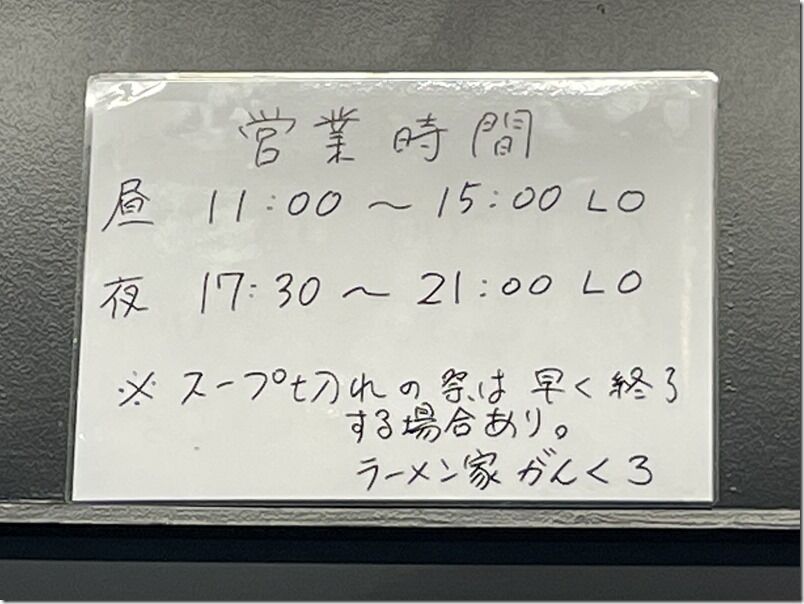 営業時間
昼 11:00 〜 15:00 LO
夜 17:30 〜 21:00 LO
※ スープ切れの祭は 早く終了
する場合あり。
ラーメン家 がんくろ